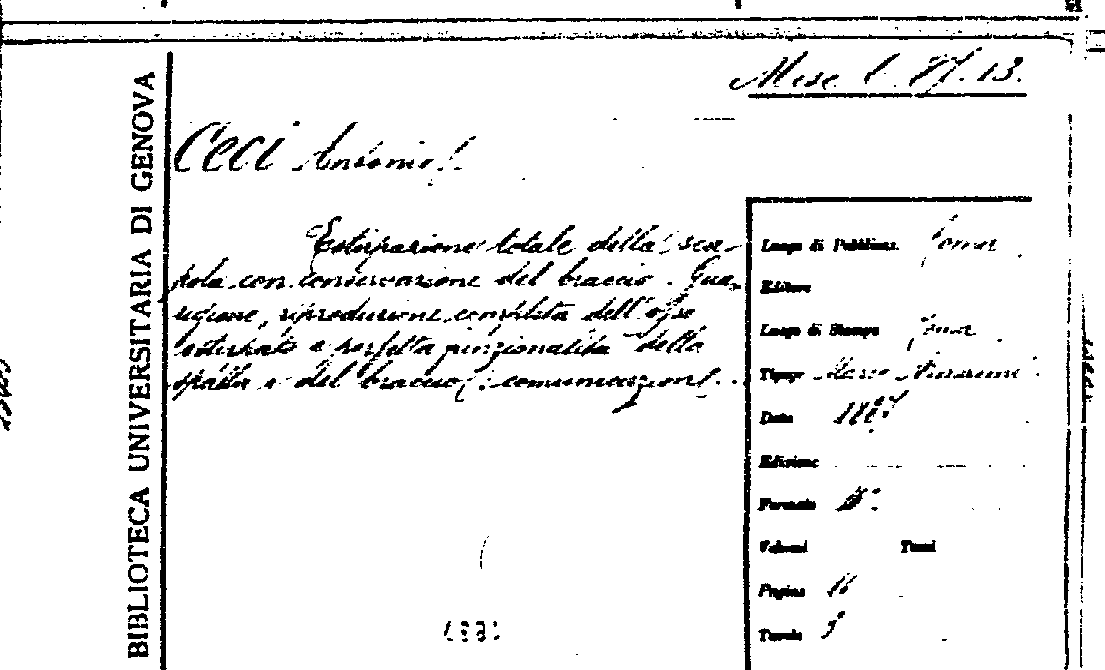 BIBLIOTECA UNIVERSITARIA DI GENOVA
Misc. l. 87. 13.
Ceci Antonio
Estirpazione totale della sca-
pola con conservazione del braccio. Gua-
rigione, riproduzione completa dell'osso
estirpato e perfetta funzionalità della
spalla e del braccio; comunicazione.
Luogo di Pubblicaz. Roma
Editore
Luogo di Stampa Roma
Tipogr Mario Armanni
Data 1887
Edizione
Formato 8°
Volumi Tomi
Pagine 16
Tavole 3